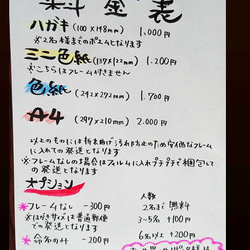 料金表
ハガキ(100×148mm) 1.000円
※2名様までのポエムとなります
ミニ色紙(137×122mm) 1.200円
※こちらはフレーム付きません
色紙(242×272mm) 1.700
A4(297×210mm) 2.000
以上のものには折れ曲げ、汚れ防止のため、簡易なフレーム
に入れての発送となります
※フレームなしの場合はフィルムに入れプチプチで梱包して
の発送となります
オプション
※フレームなし -300円
※はがきサイズは普通郵便
での発送となります
※命名のみ -200円
人数
2名まで 無料
3~5名 +100円
6名以上 +200円